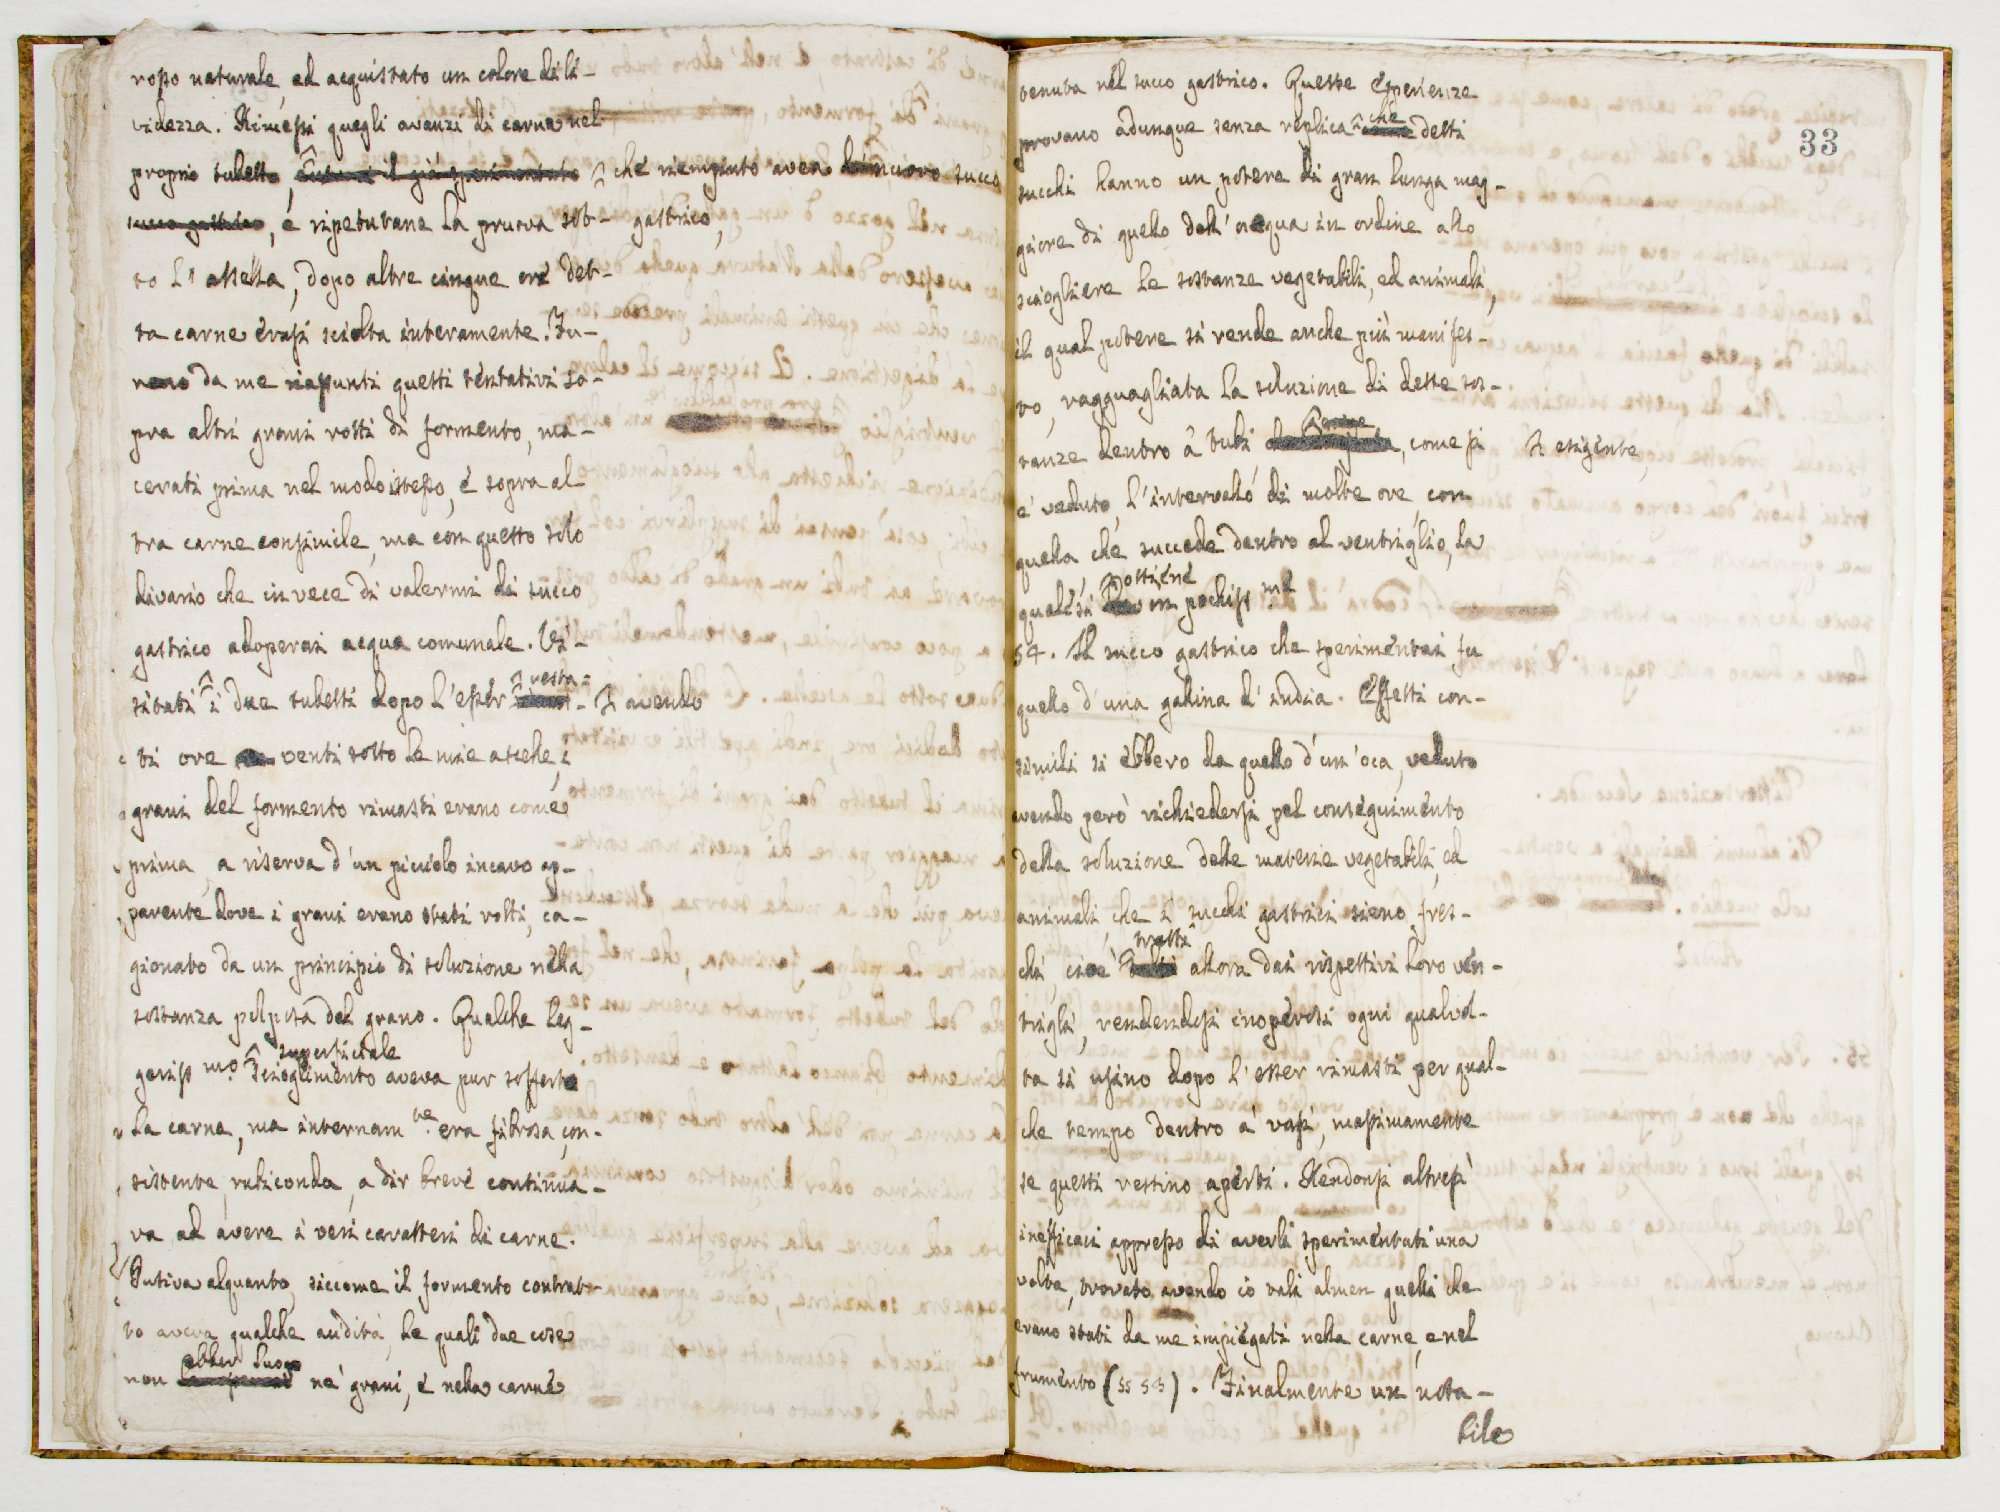 rosso naturale, ed acquistato un colore di li-
videzza. Rimessi quegli avanzi di carne nel
proprio tubetto, che riempiuto avea di nuovo succo
succo gastrico, e ripetutane la pruova sot- gastrico,
to l'ascella, dopo altre cinque ore det-
ta carne erasi sciolta interamente. Fu-
rono da me riassunti questi tentativi so-
pra altri grani rotti di formento, ma-
cerati prima nel modo istesso, e sopra al
tra carne consimile, ma con questo solo
divario che in vece di valermi di succo
gastrico adoperai acqua comunale. Vi-
resta-
sitati i due tubetti dopo l'esser avendo
ti ore venti sotto le mie ascelle, i
grani del formento rimasti erano come
prima, a riserva d'un picciolo incavo ap-
parente dove i grani erano stati rotti, ca-
gionato da un principio di soluzione nella
sostanza polposa del grano. Qualche leg-
superficiale
geriss mo. scioglimento aveva pur sofferto
la carne, ma internam te. era fibrosa, con-
sistente, rubiconda, a dir breve continua-
va ad avere i veri caratteri di carne.
Putiva alquanto, siccome il formento contrat-
to aveva qualche acidità, le quali due cose
ebber luogo
non ne' grani, e nella carne
33
tenuta nel succo gastrico. Queste esperienze
che
provano adunque senza replica detti
succhi hanno un potere di gran lunga mag-
giore di quello dell'acqua in ordine allo
sciogliere le sostanze vegetabili, ed animali,
il qual potere si rende anche più manifes-
to, ragguagliata la soluzione di dette sos-
tanze dentro a' tubi, come si esigente,
e' veduto, l'intervallo di molte ore, con
quella che succede dentro al ventriglio, la
ottiene
quale si in pochiss me
54. Il succo gastrico che sperimentai fu
quello d'una gallina d'india. Effetti con-
simili si ebbero da quello d'un'oca, veduto
avendo però richiedersi pel conseguimento
della soluzione delle materie vegetabili, ed
animali, che i succhi gastrici sieno fres-
tratti
chi, cioè allora dai rispettivi loro ven-
trigli, rendendosi inoperosi ogni qualvol-
ta si usino dopo l'esser rimasti per qual-
che tempo dentro a' vasi, massimamente
se questi restino aperti. Rendonsi altresì
inefficaci appresso di averli sperimentati una
volta, trovato avendo io tali almen quelli che
erano stati da me impiegati nella carne, e nel
frumento (§§ 53). Finalmente un nota-
bile